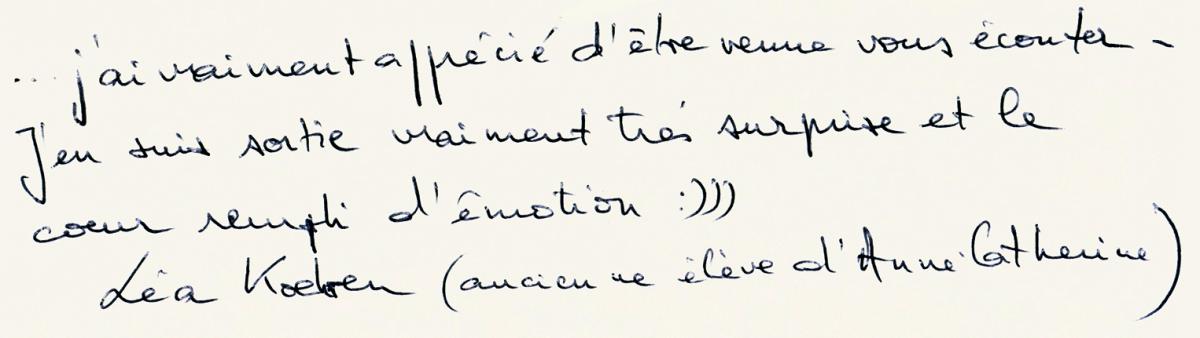 ... j'ai vraiment apprécié d'être venue vous écouter -
J'en suis sortie vraiment très surprise et le
cœur rempli d'émotion :)))
Léa (ancienne élève d'Anne Catherine)